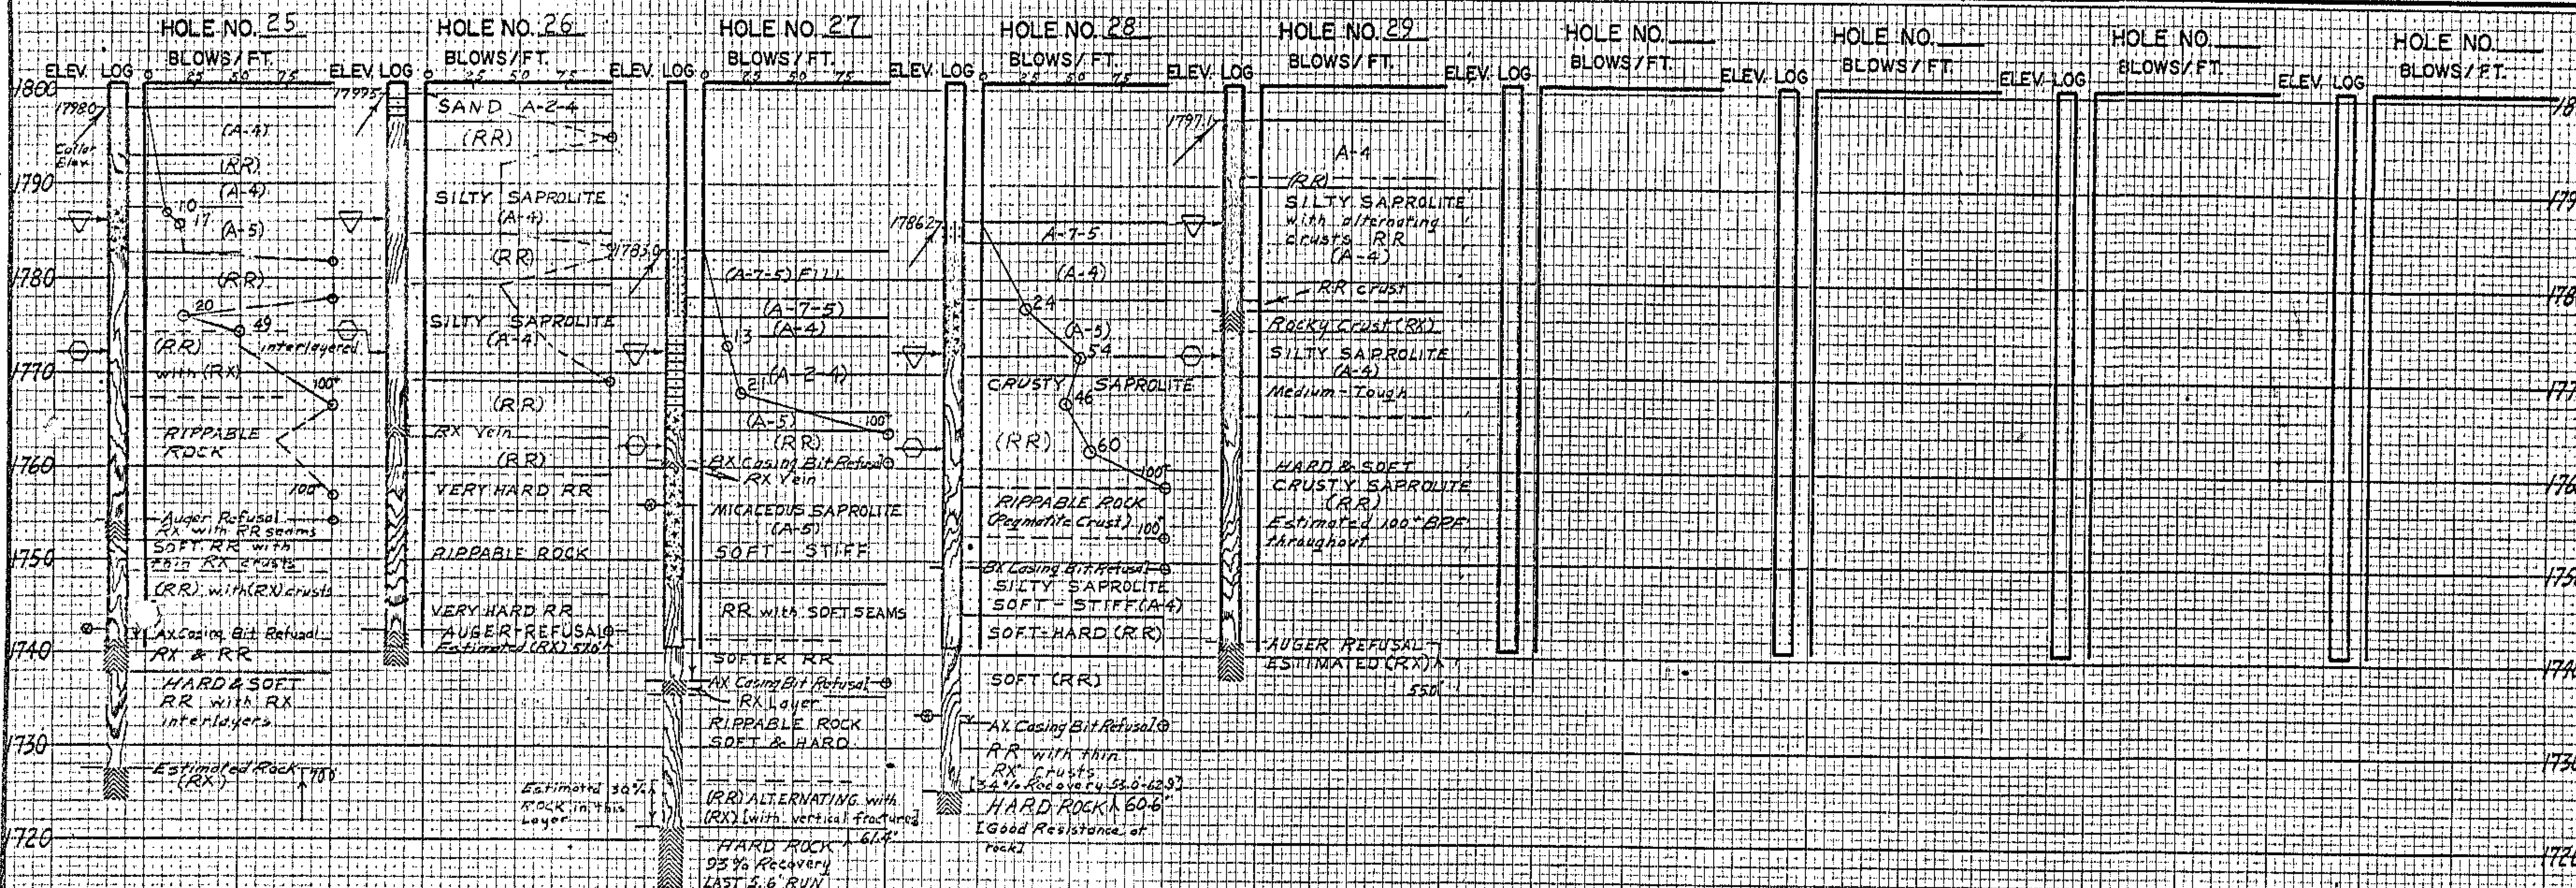 HOLE NO. 25
BLOWS/FT.
ELEV. LOG 0 25 50 75
1800
1790
1780
1770
1760
1750
1740
1730
1720
1798.0
Collar
Elev.
(A-4)
(RR)
(A-4)
10
17
(A-5)
(RR)
20
49
(RR) interlayered
with (RX)
100+
RIPPABLE
ROCK
100+
Auger Refusal
RX with RR seams
SOFT RR with
thin RX crusts
(RR) with (RX) crusts
AX Casing Bit Refusal
RX & RR
HARD & SOFT
RR with RX
interlayers
Estimated Rock 70.0'
(RX)
HOLE NO. 26
BLOWS/FT.
ELEV. LOG 0 25 50 75
1799.5
SAND A-2-4
(RR)
SILTY SAPROLITE
(A-4)
(RR)
SILTY SAPROLITE
(A-4)
(RR)
RX Vein
(RR)
VERY HARD RR
RIPPABLE ROCK
VERY HARD RR
AUGER REFUSAL
Estimated (RX) 57.0'
HOLE NO. 27
BLOWS/FT.
ELEV. LOG 0 25 50 75
1783.0
(A-7-5) FILL
(A-7-5)
(A-4)
13
(A-2-4)
21
(A-5)
100+
(RR)
BX Casing Bit Refusal
RX Vein
MICACEOUS SAPROLITE
(A-5)
SOFT - STIFF
RR with SOFT SEAMS
SOFTER RR
AX Casing Bit Refusal
RX Layer
RIPPABLE ROCK
SOFT & HARD
Estimated 30%
ROCK in this
Layer
(RR) ALTERNATING with
(RX) [with vertical fractures]
HARD ROCK 61.4'
93% Recovery
LAST 5.6 RUN
HOLE NO. 28
BLOWS/FT.
ELEV. LOG 0 25 50 75
1786.2
A-7-5
(A-4)
24
(A-5)
54
CRUSTY SAPROLITE
46
(RR)
60
100+
RIPPABLE ROCK
(Pegmatite Crust) 100+
BX Casing Bit Refusal
SILTY SAPROLITE
SOFT - STIFF (A-4)
SOFT-HARD (RR)
SOFT (RR)
AX Casing Bit Refusal
RR with thin
RX crusts
[34% Recovery 53.0-62.9]
HARD ROCK 60.6'
[Good Resistance at
rock]
HOLE NO. 29
BLOWS/FT.
ELEV. LOG
1797.1
A-4
(RR)
SILTY SAPROLITE
with alternating
crusts RR
(A-4)
RR crust
Rocky Crust (RX)
SILTY SAPROLITE
(A-4)
Medium-Tough
HARD & SOFT
CRUSTY SAPROLITE
(RR)
Estimated 100+ BPF
throughout
AUGER REFUSAL
ESTIMATED (RX)
55.0'
HOLE NO.
BLOWS/FT.
ELEV. LOG
HOLE NO.
BLOWS/FT.
ELEV. LOG
HOLE NO.
BLOWS/FT.
ELEV. LOG
HOLE NO.
BLOWS/FT.
ELEV. LOG